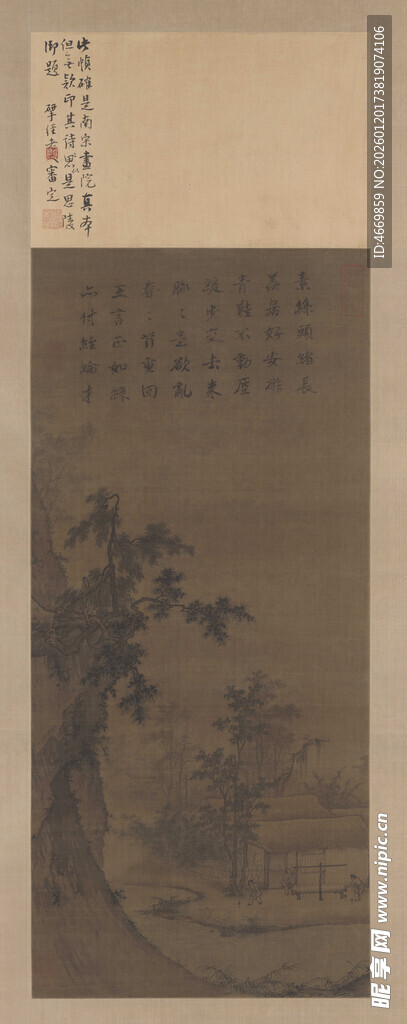 此幀確是南宋畫院真本
但無款印其詩思是思陵
御題
揅經老審定
素絲頭緒長
羨君好安排
青鞋不動塵
緩步交去來
脈〻意欲亂
眷〻首重回
王言正如絲
亦付經綸才
ID:4669859 NO:20260120173819074106
昵享网 www.nipic.cn